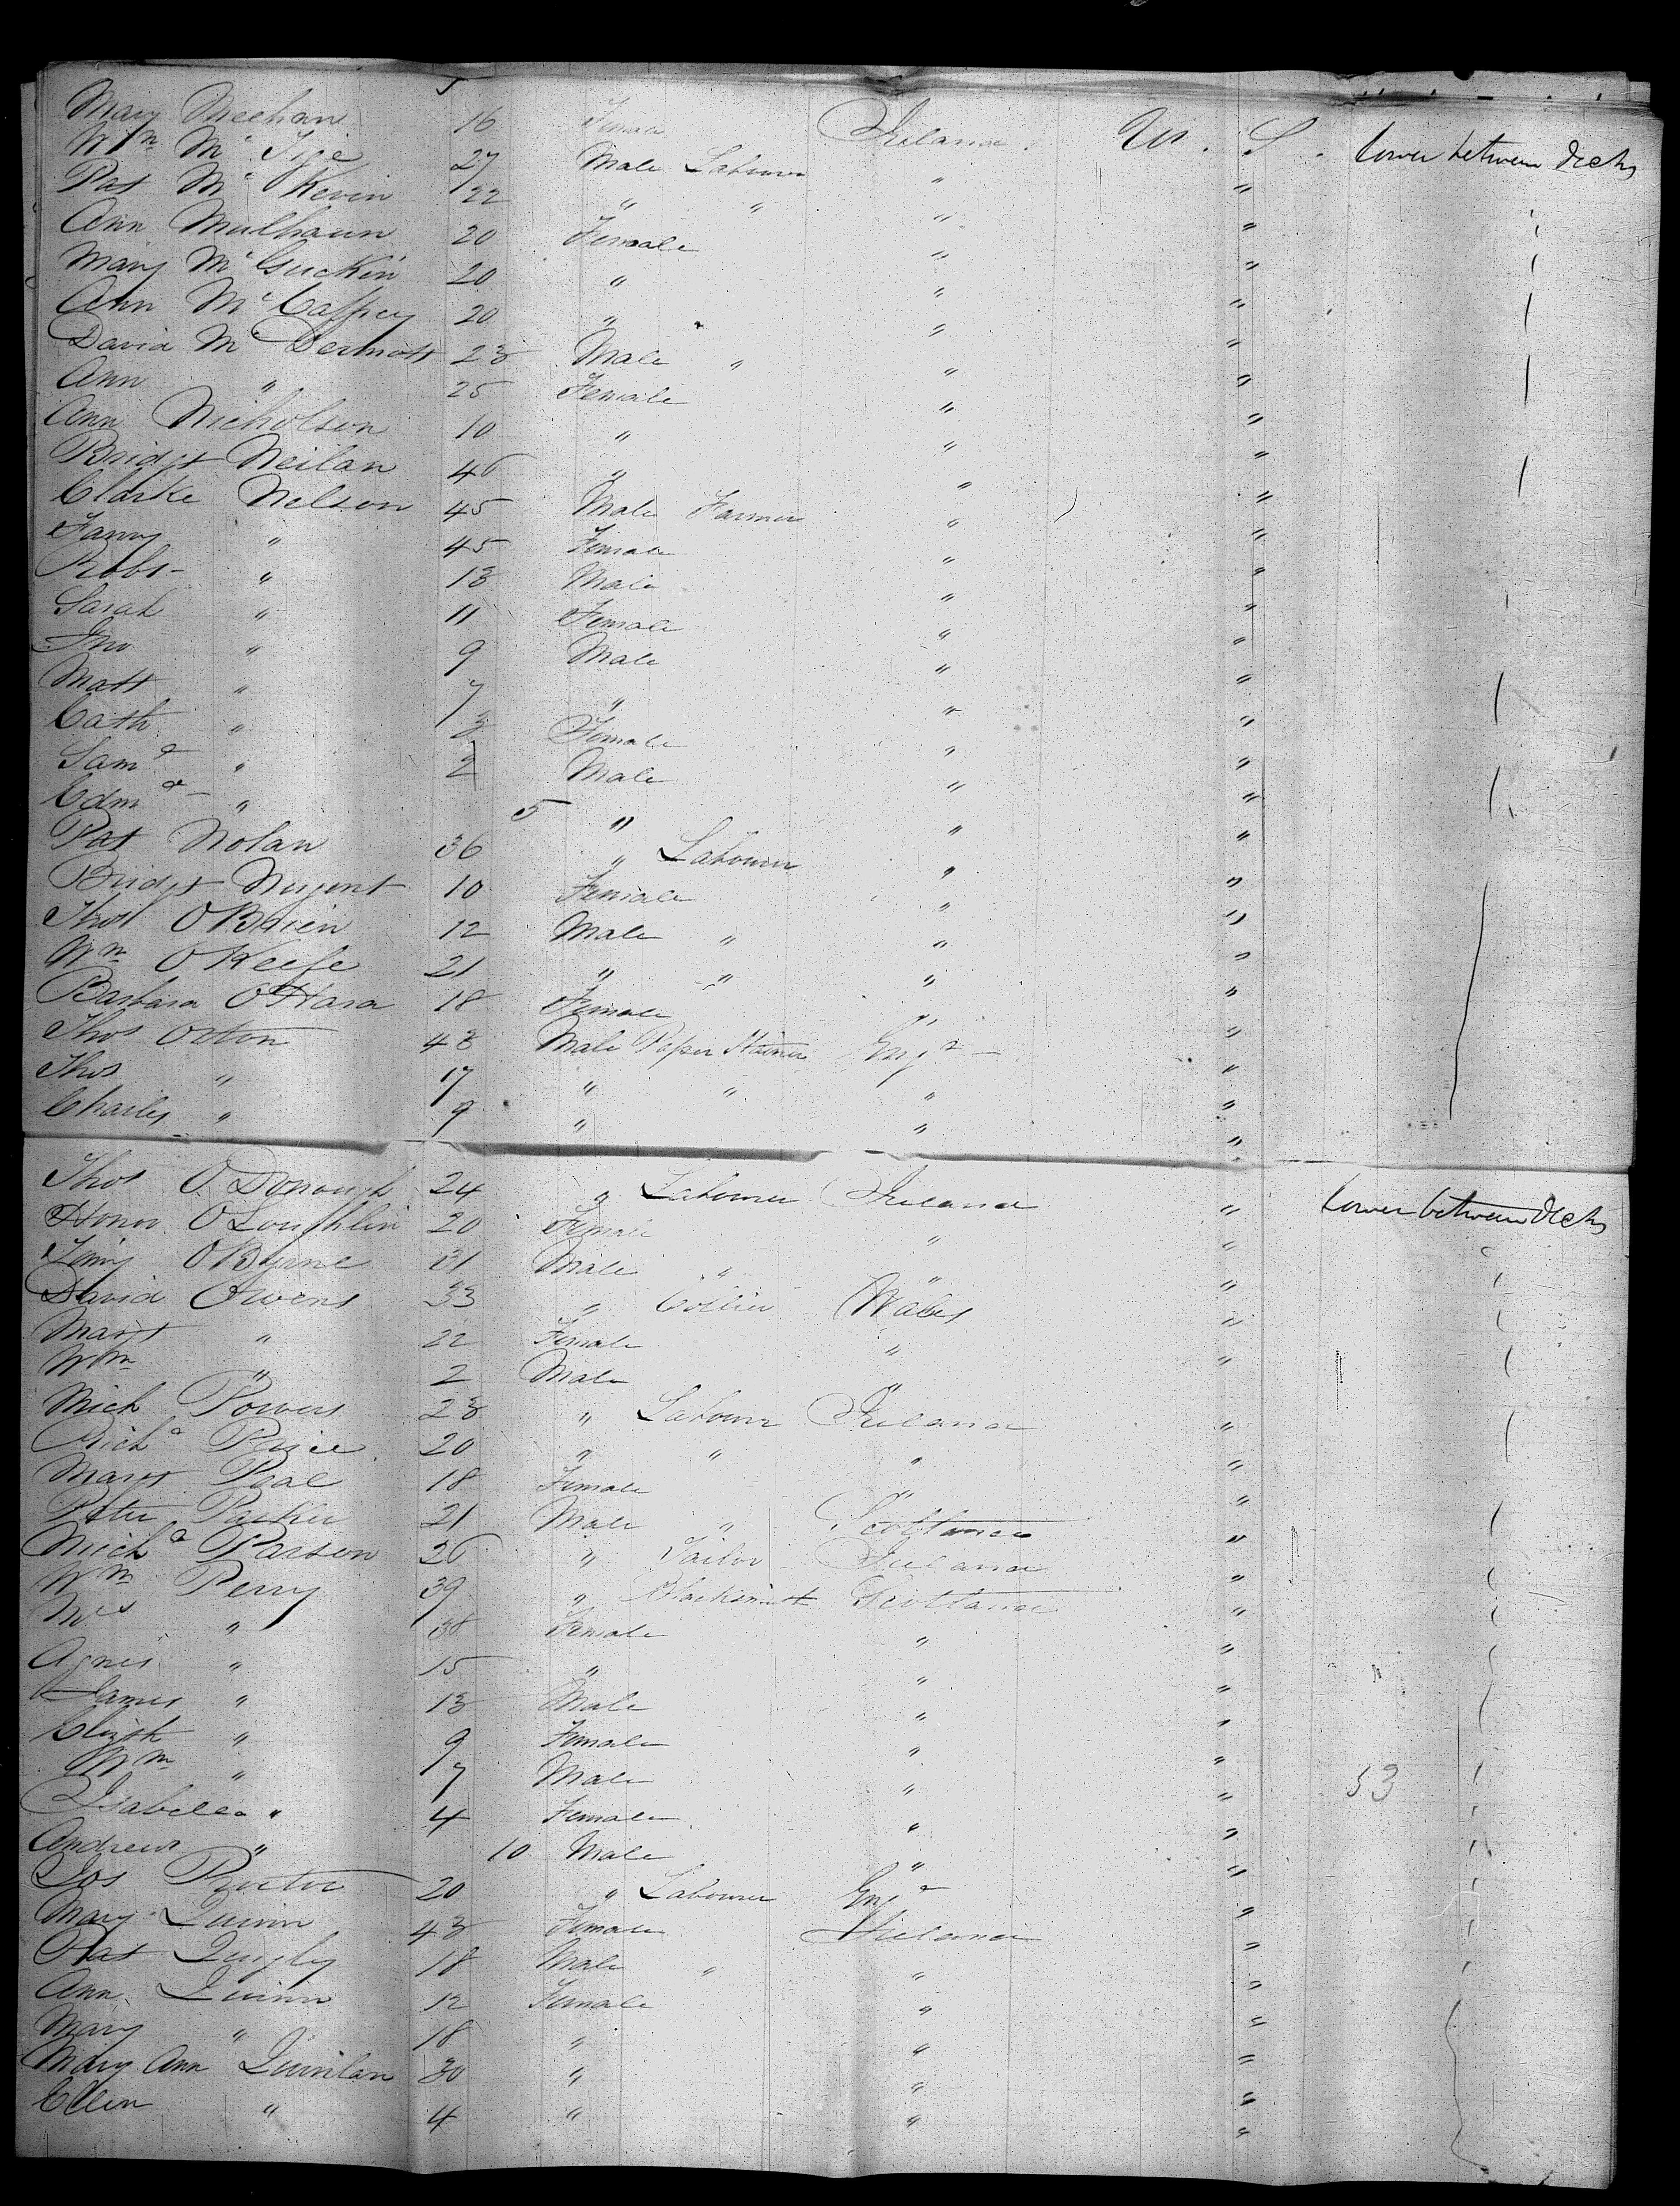 Mary Meehan 16 Female Ireland . U . S . lower between decks
Wm McTige 27 Male Labourer " "
Pat McKevin 22 " " " "
Ann Mulhaun 20 Female " "
Mary McGuckin 20 " " "
Ann McCaffrey 20 " " "
David McDermott 23 Male " " "
Ann " 25 Female " "
Ann Nicholson 10 " " "
Bridgt Neilan 46 " " "
Clarke Nelson 45 Male Farmer " "
Fanny " 45 Female " "
Robt " 13 Male " "
Sarah " 11 Female " "
Jno " 9 Male " "
Matt " 7 " " "
Cath " 3 Female " "
Saml " 2 Male " "
Edmd " 5 " " "
Pat Nolan 36 " Labourer " "
Bridgt Nugent 10 Female " "
Thos O'Brien 12 Male " " "
Wm O'Keefe 21 " " " "
Barbara O'Hara 18 Female " "
Thos Orton 43 Male Paper Stainer Engd "
Thos " 17 " " " "
Charles " 9 " " "
Thos O'Donough 24 " Labourer Ireland " lower between decks
Honor O'Loughlin 20 Female " "
O'Byrne 31 Male " " "
David Owens 33 " Collier Wales "
Margt " 22 Female " "
Wm " 2 Male " "
Mich Powers 23 " Labourer Ireland "
Richd Price 20 " " " "
Margt 18 Female " "
Peter Parker 21 Male " Scotland "
Michl Parson 26 " Tailor Ireland "
Wm Perry 39 " Blacksmith Scotland "
Mrs " 38 Female " "
Agnes " 15 " " "
James " 13 Male " "
Elizth " 9 Female " "
Wm " 7 Male " " 53
Isabella " 4 Female " "
Andrew " 10 Male " "
Jos Procter 20 " Labourer Engd "
Mary Quinn 43 Female Ireland "
Pat Quigley 18 Male " " "
Ann Quinn 12 Female " "
Mary " 18 " " "
Mary Ann Quinlan 30 " " "
Ellen " 4 " " "